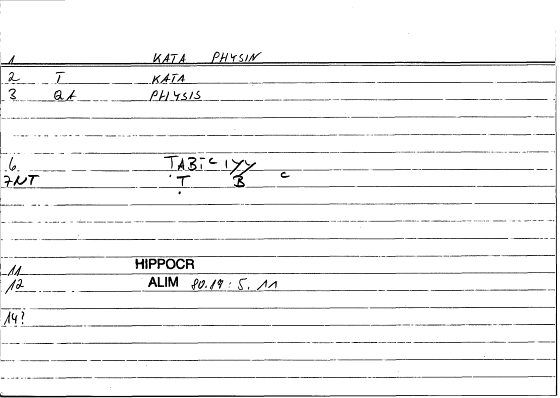 1 KATA PHYSIN
2 T KATA
3 QA PHYSIS
6. ṬABIᶜIYY
7NT Ṭ B ᶜ
11 HIPPOCR
12 ALIM 80.19:5.11
14?